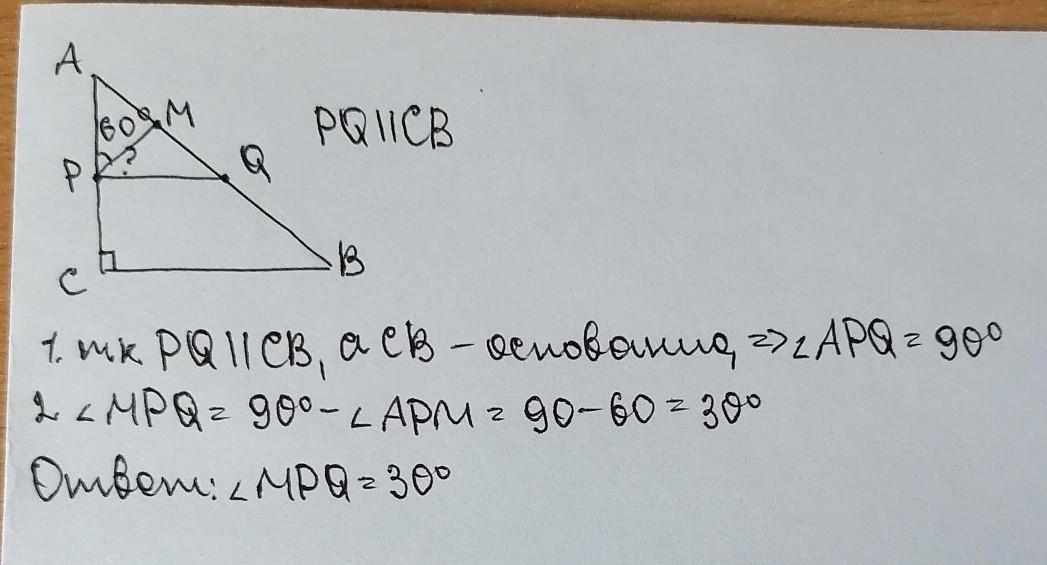 A
60° M
PQ||CB
P ? Q
C B
1. тк PQ||CB, а CB – основания, => ∠APQ = 90°
2 ∠MPQ = 90° - ∠APM = 90 - 60 = 30°
Ответ: ∠MPQ = 30°